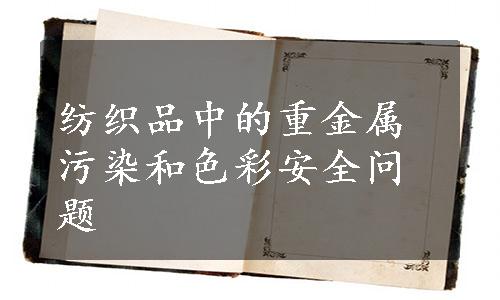 纺织品中的重金属
污染和色彩安全问
题